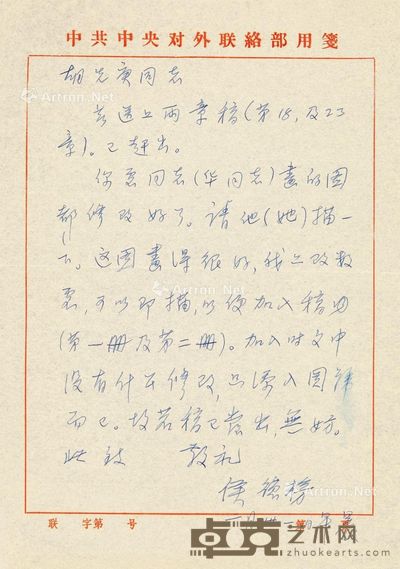 中共中央对外联络部用笺
胡先庚同志
兹送上两章稿(第18,及23
章)。已赶出。
你処同志(华同志)畫的图
都修改好了。請他(她)描一
下。这图畫得很好,我只改数
処,可以即描,以便加入稿内
(第一册及第二册)。加入时文中
没有什么修改,只添入图
而已。故若稿已発出,無妨。
此致 敬礼
侯德榜
联 字第 号
卓克艺术网
zhuokearts.com
Artron.Net